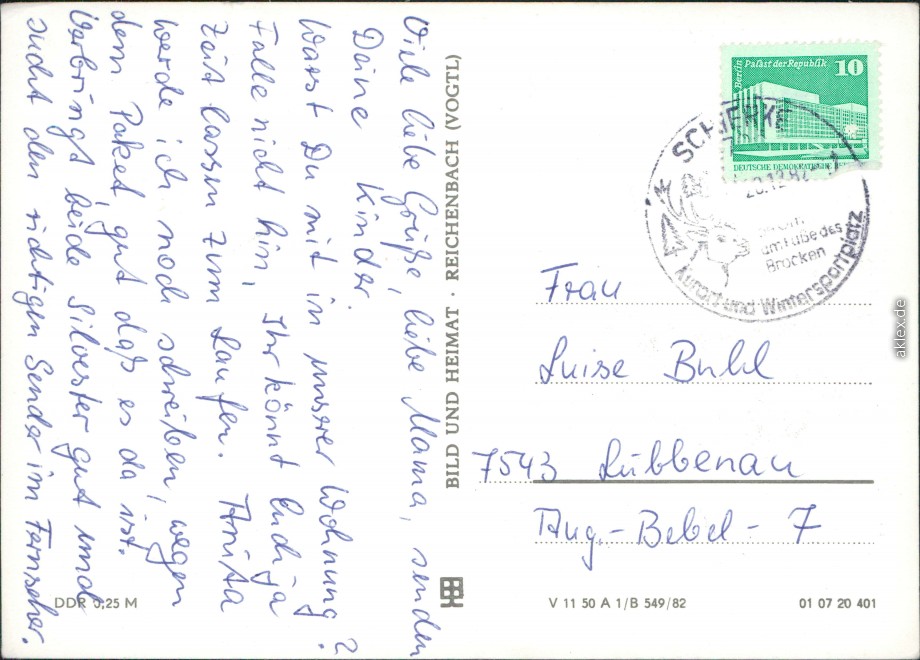 Viele liebe Grüße, liebe Mama, senden
Deine Kinder.
Warst Du mit in unserer Wohnung?
Falle nicht hin, Ihr könnt Euch ja
Zeit lassen zum Laufen. Anita
werde ich noch schreiben, wegen
dem Paket, gut daß es da ist.
Verbringt beide Silvester gut und
sucht den richtigen Sender im Fernseher.
DDR 0,25 M
BILD UND HEIMAT · REICHENBACH (VOGTL)
Berlin Palast der Republik 10
DEUTSCHE DEMOKRATISCHE
SCHIERKE
28.12.82
am Fuße des
Brocken
Kurort und Wintersportplatz
Frau
Luise Buhl
7543 Lübbenau
Aug.-Bebel-7
V 11 50 A 1/B 549/82
01 07 20 401
aklex.de